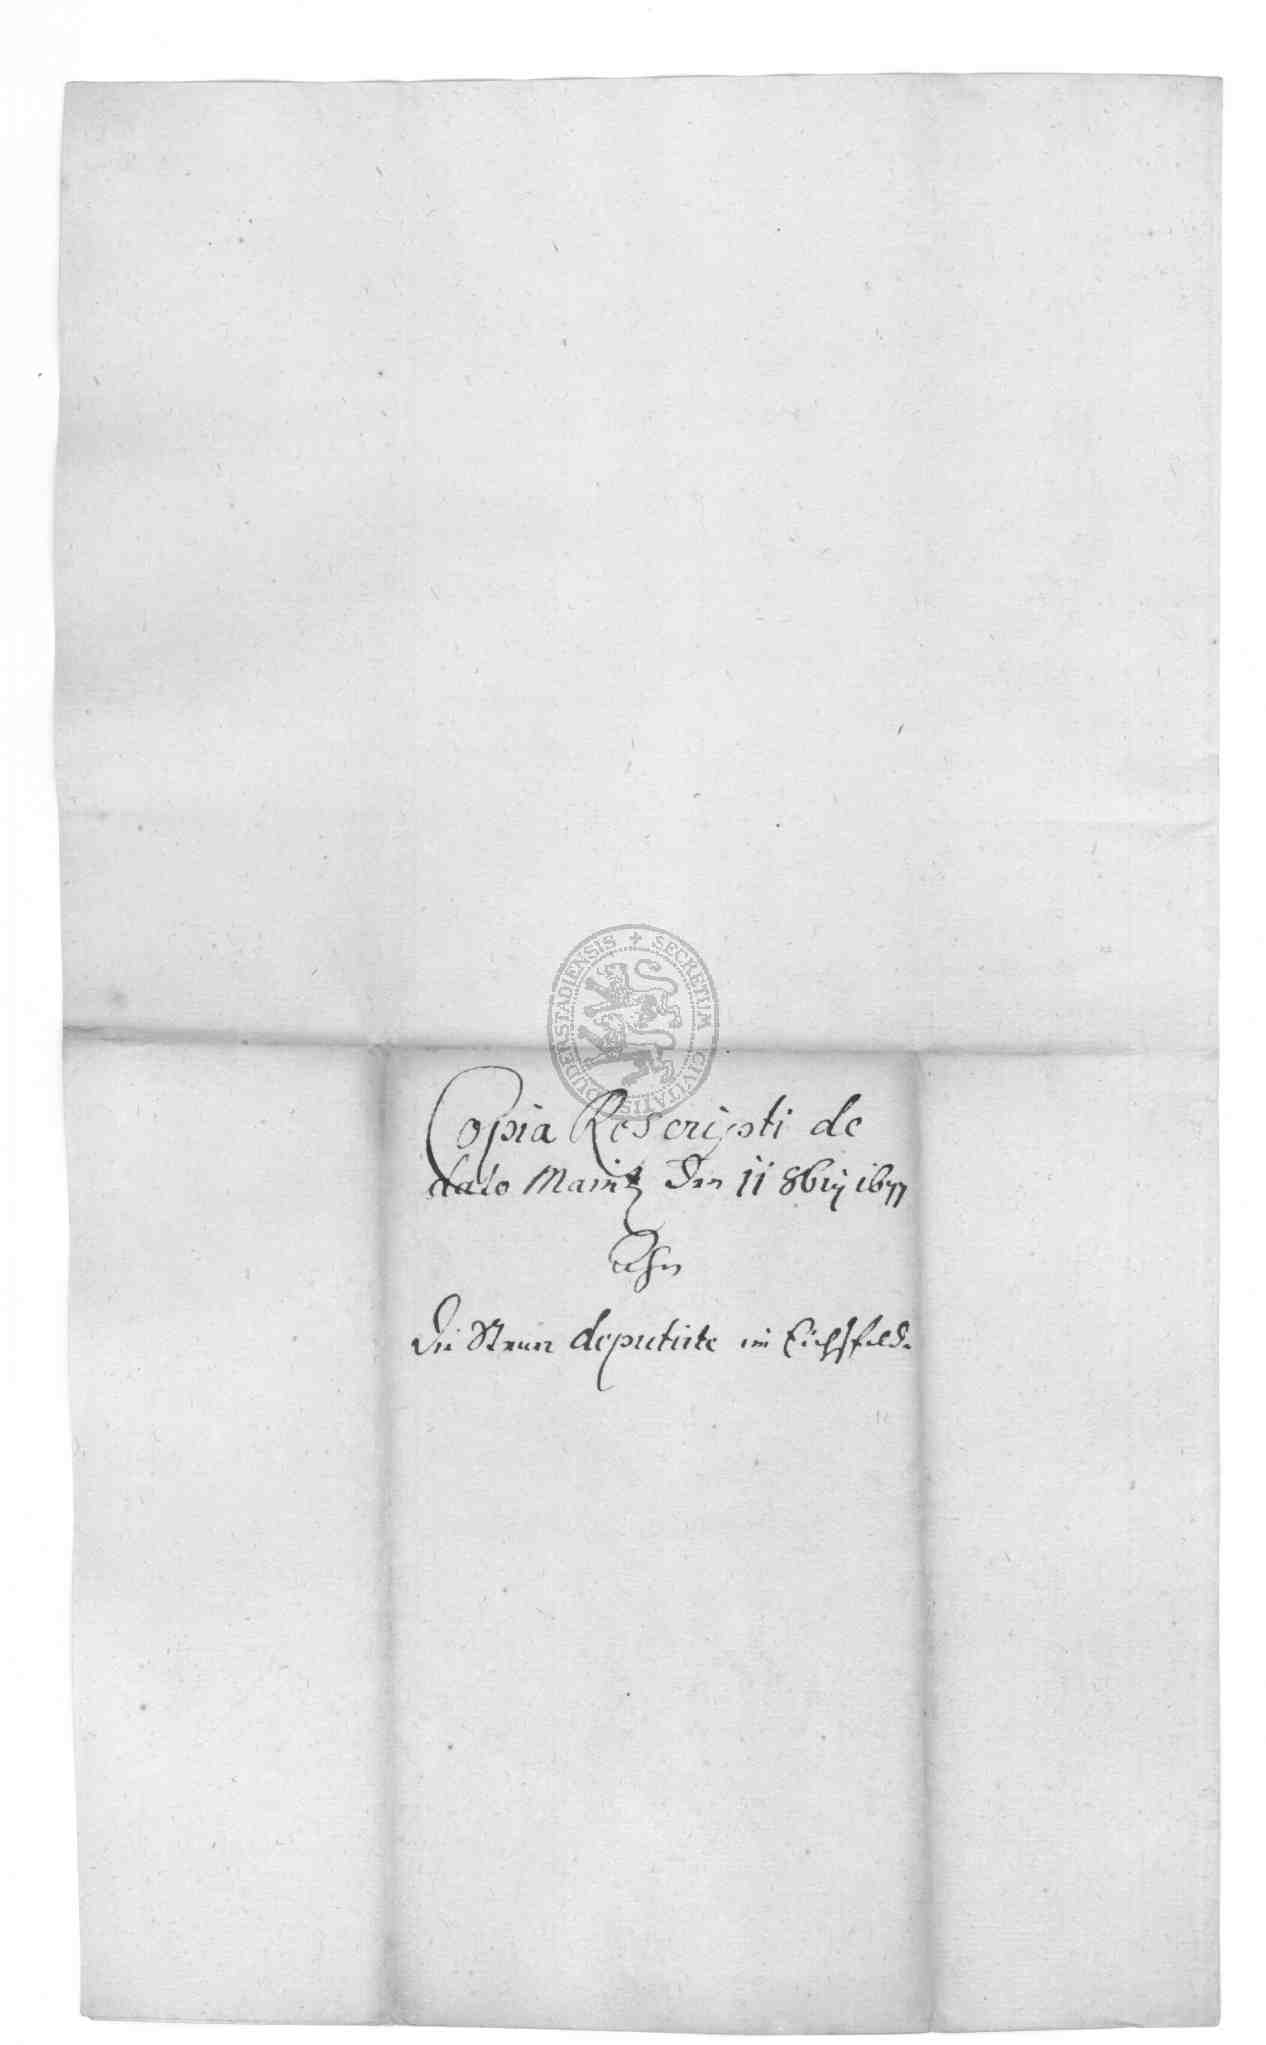 SECRETUM CIVITATIS DUDERSTADIENSIS
Copia Rescripti de
dato Maintz den 11 8brij 1677
Ahn
Die Steur deputirte im Eichsfeld.